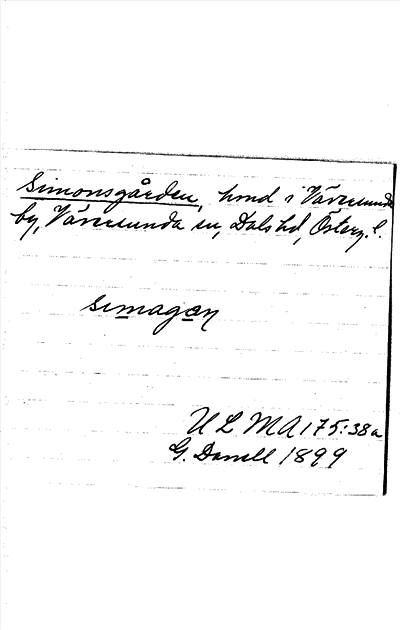 Simonsgården, hmd i Väversunda
by, Väversunda sn, Dals hd, Österg. l.
simagən
ULMA 175:38a
G. Danell 1899